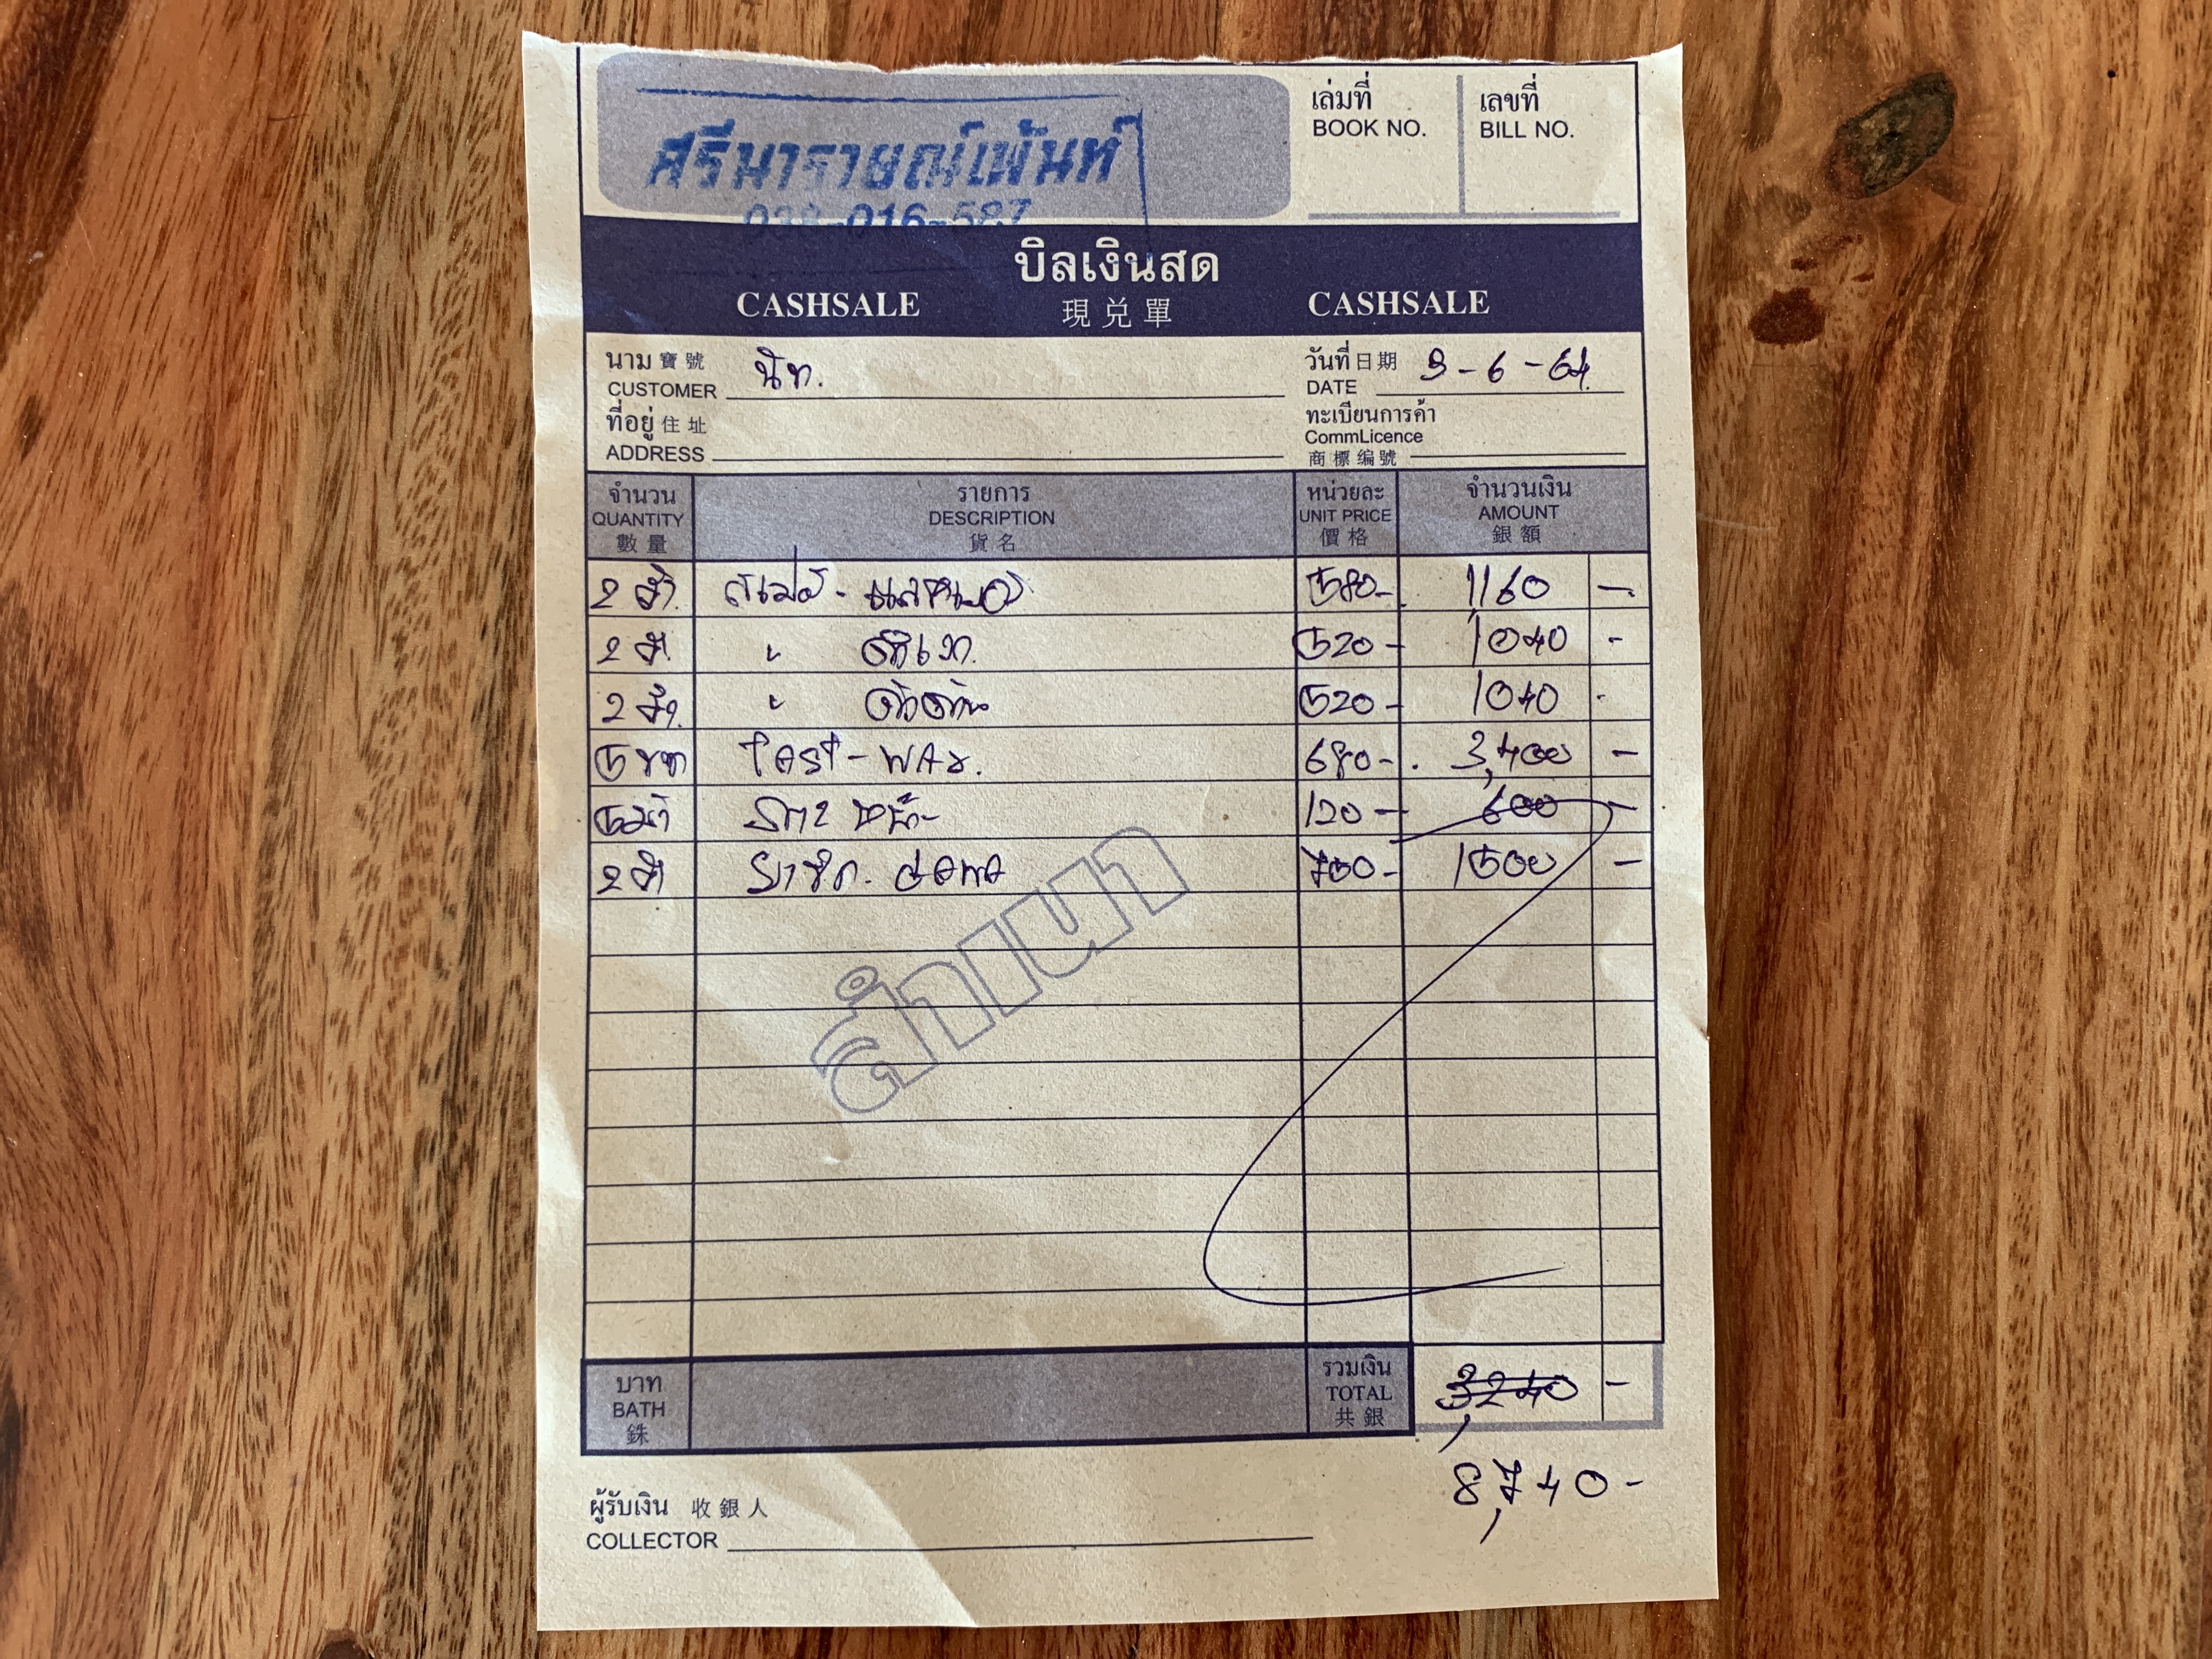 ศรีนารายณ์เพ้นท์
038-016-587
เล่มที่
BOOK NO.
เลขที่
BILL NO.
บิลเงินสด
CASHSALE 現兌單 CASHSALE
นาม 寶號
CUSTOMER
วันที่ 日期
DATE 3-6-64
ที่อยู่ 住址
ADDRESS
ทะเบียนการค้า
CommLicence
商標編號
จำนวน
QUANTITY
數量
รายการ
DESCRIPTION
貨名
หน่วยละ
UNIT PRICE
價格
จำนวนเงิน
AMOUNT
銀額
2 580- 1,160 -
2 " 520- 1,040 -
2 " 520- 1040 -
5 680- 3,400 -
5 120- 600 -
2 750- 1500 -
สำเนา
บาท
BATH
銖
รวมเงิน
TOTAL
共銀
3,240 -
8,740-
ผู้รับเงิน 收銀人
COLLECTOR